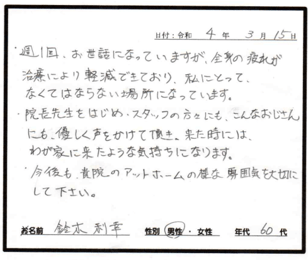 日付：令和 4 年 3 月 15 日
・週1回、お世話になっていますが、全身の疲れが
治療により軽減できており、私にとって、
なくてはならない場所になっています。
・院長先生をはじめ・スタッフの方々にも、こんなおじさん
にも、優しく声をかけて頂き。来た時には、
わが家に来たような気持ちになります。
・今後も、貴院のアットホームの様な雰囲気を大切に
して下さい。
お名前 鈴木 利幸 性別 男性・女性 年代 60 代